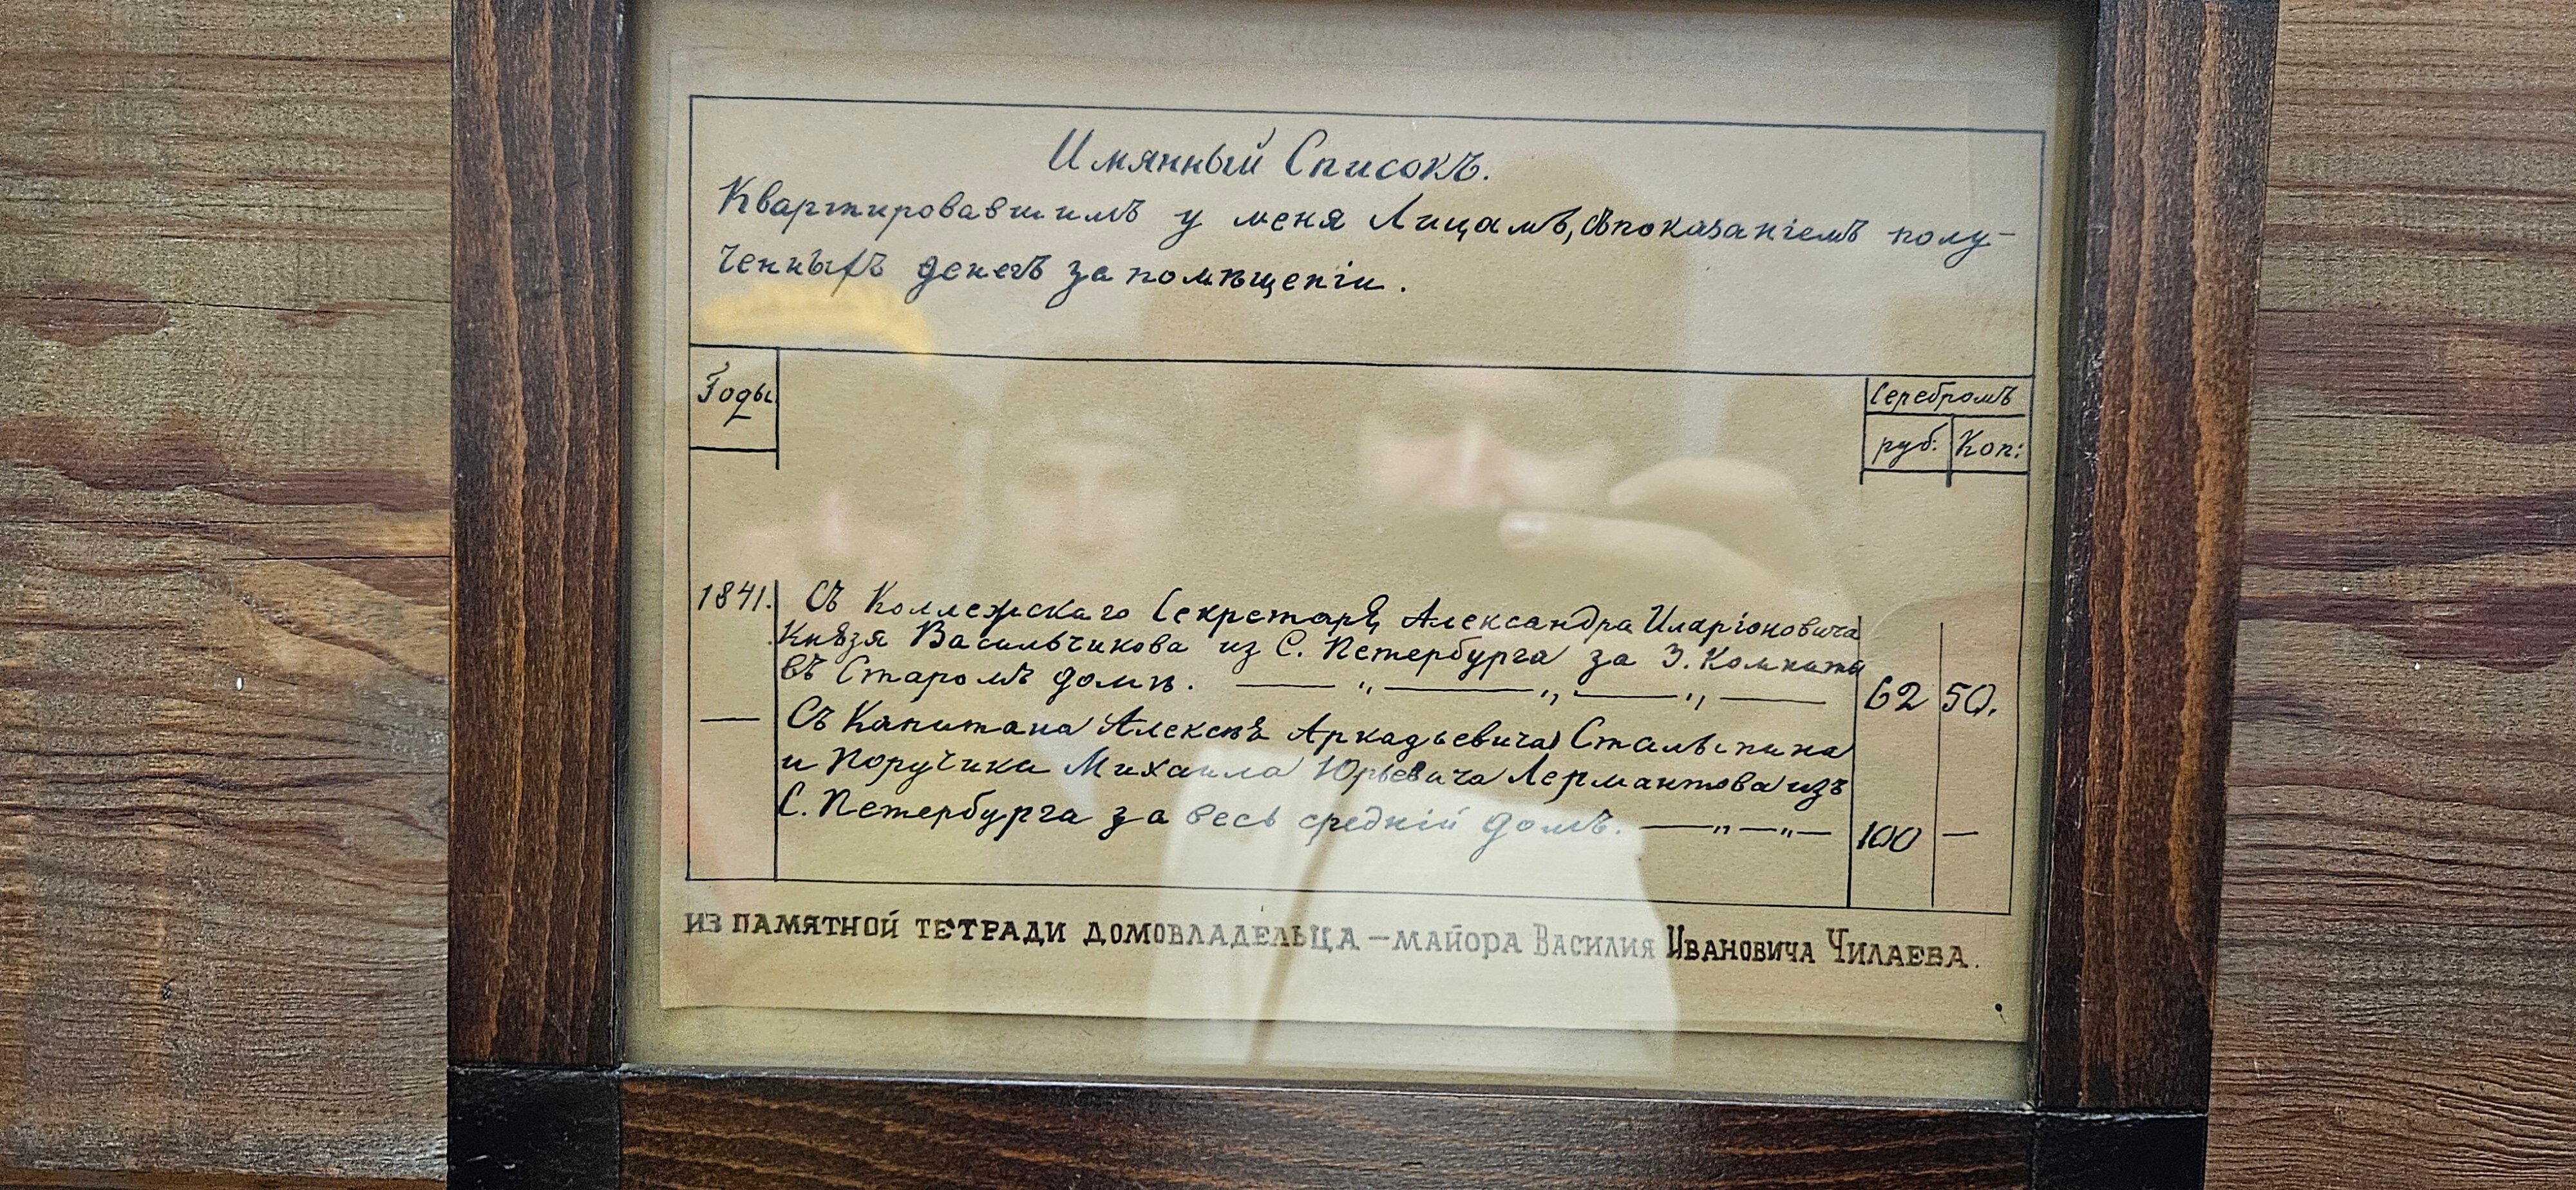 Имянный Списокъ.
Квартировавшимъ у меня Лицамъ, съ показаніемъ полу-
ченныхъ денегъ за помѣщеніи.
Годы
Серебромъ
руб: Коп:
1841. Съ Коллежскаго Секретаря Александра Иларіоновича
Князя Васильчикова из С. Петербурга за 3. Комнаты
въ Старомъ домѣ. — „ — „ — „ — 62 50.
— Съ Капитана Алексѣя Аркадьевича Столыпина
и Поручика Михаила Юрьевича Лермантова изъ
С. Петербурга за весь средній домъ. — „ — „ — 100 —
ИЗ ПАМЯТНОЙ ТЕТРАДИ ДОМОВЛАДЕЛЬЦА – МАЙОРА ВАСИЛИЯ ИВАНОВИЧА ЧИЛАЕВА.